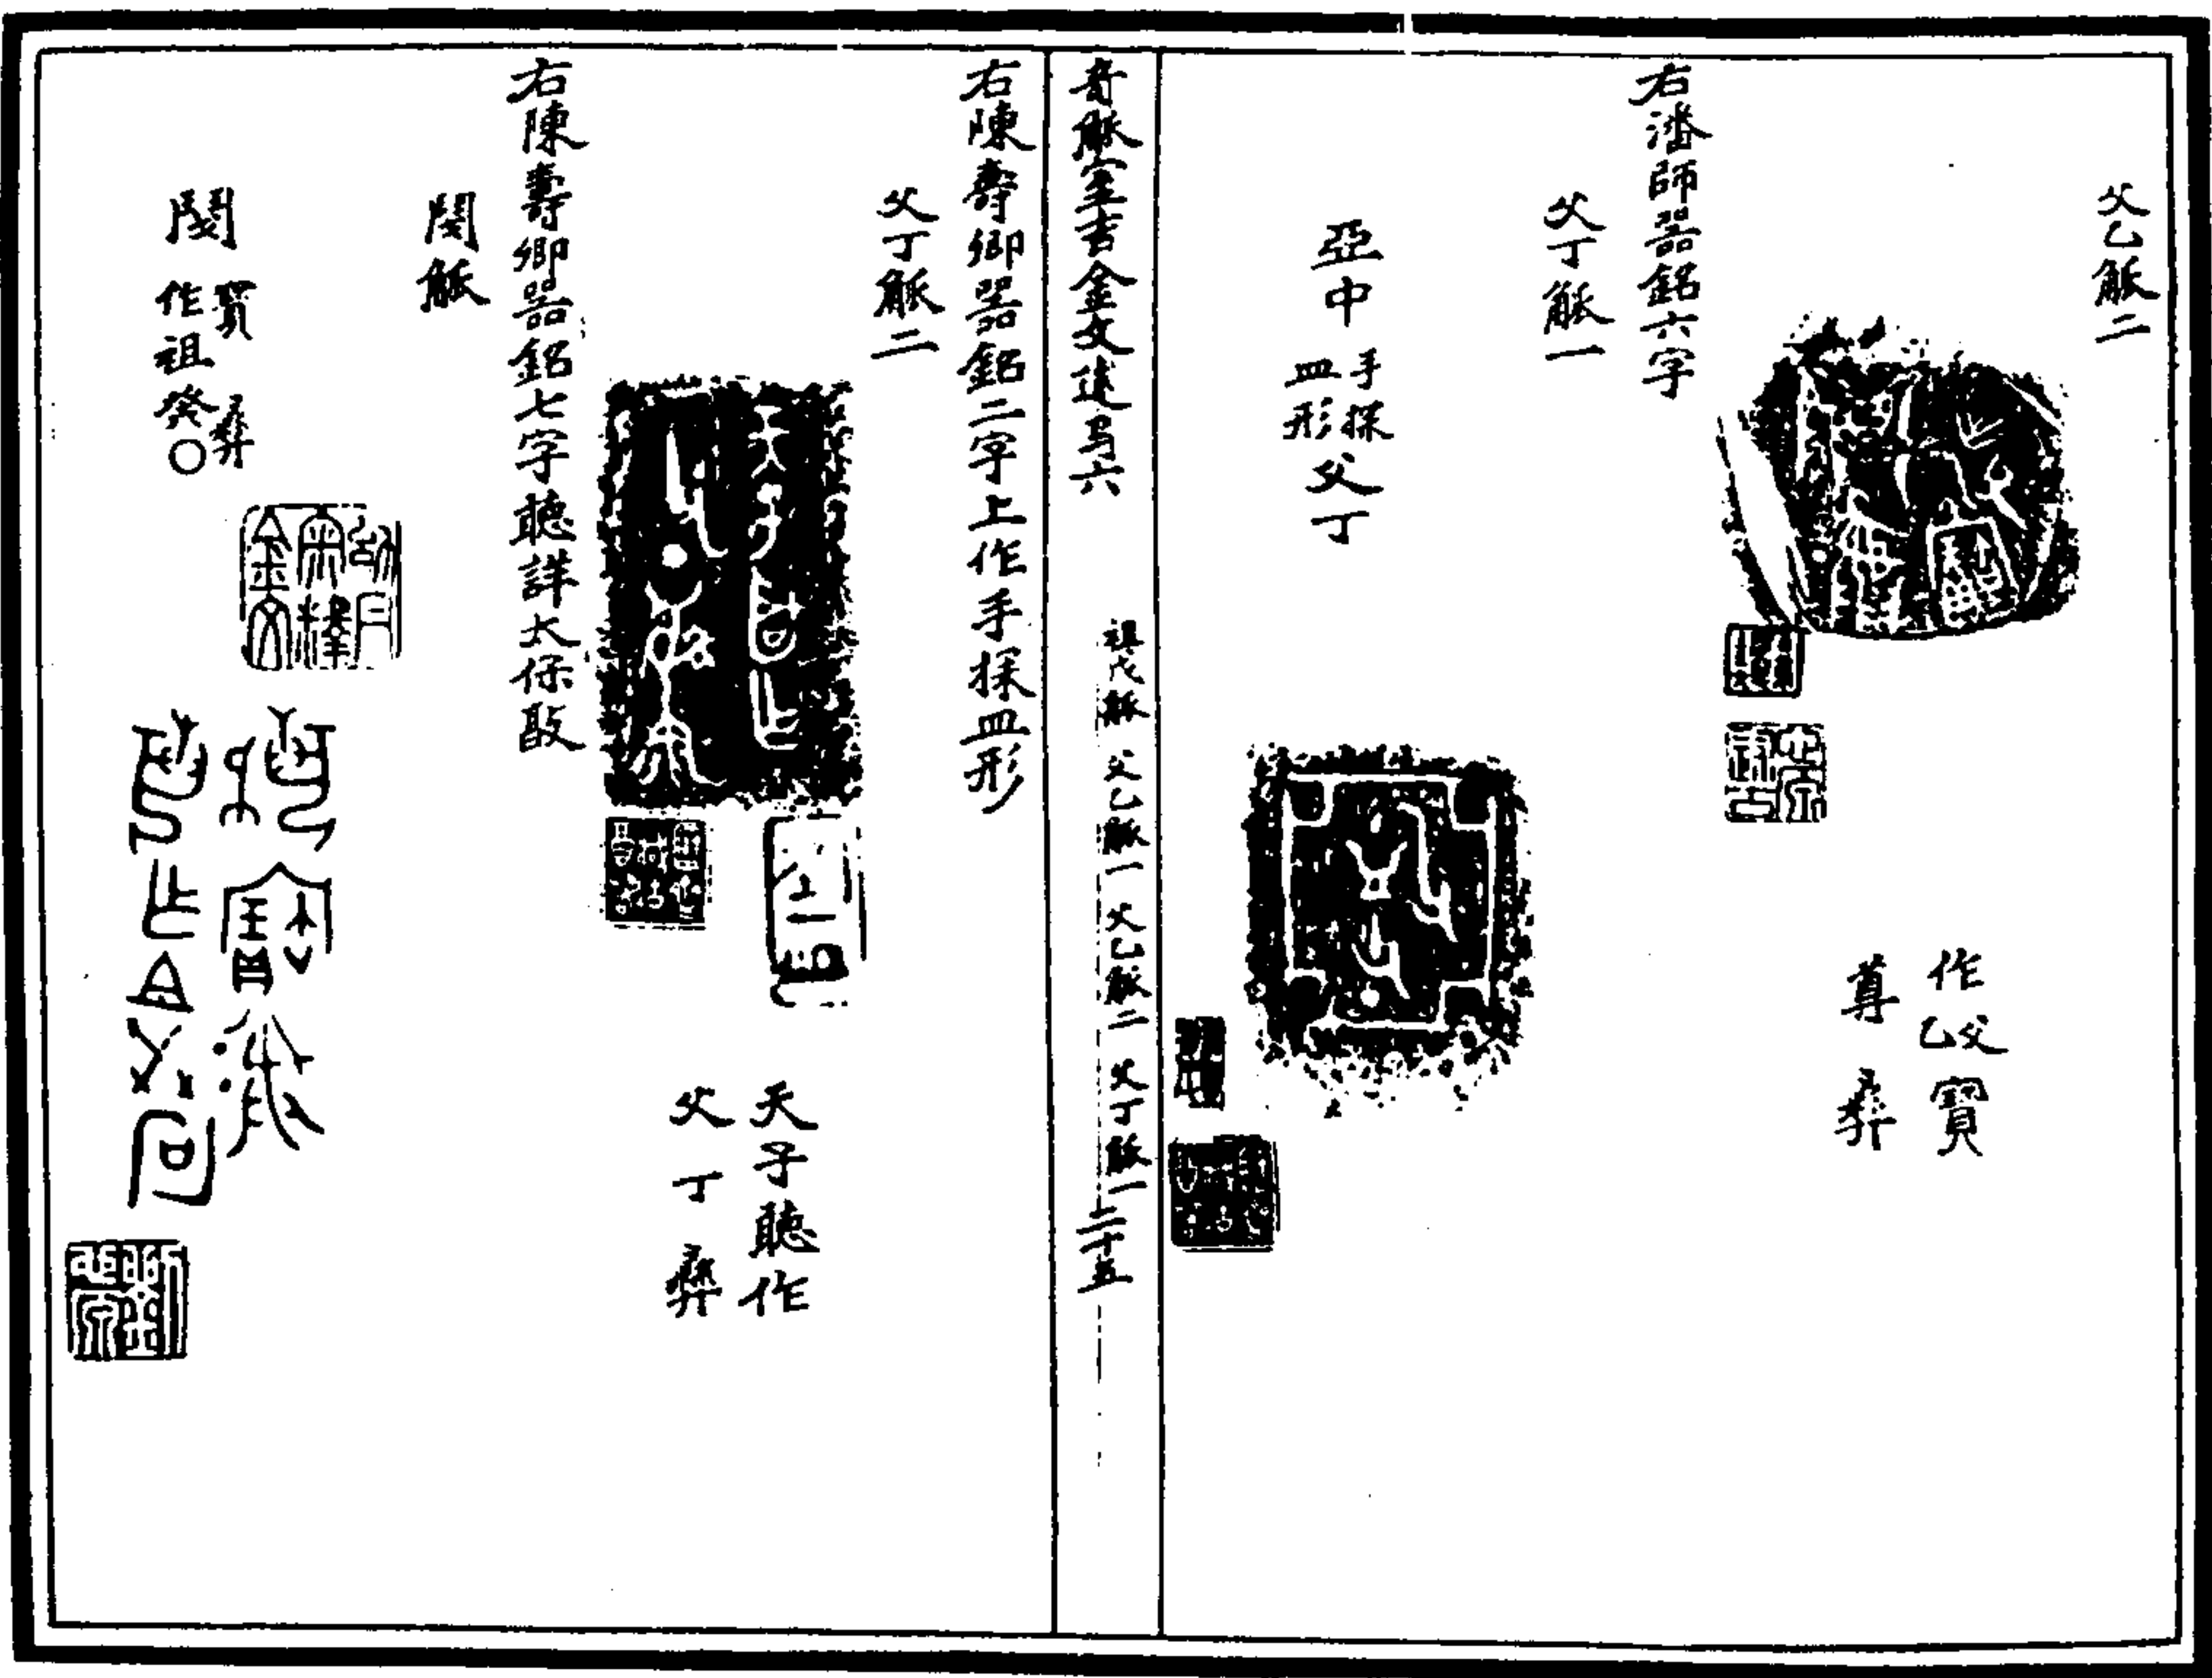 父乙觶二
作父乙寶
尊彝
右潘師器銘六字
父丁觶一
亞中
手探
皿形
父丁
奇觚室吉金文述卷六
祖戊觶 父乙觶一 父乙觶二 父丁觶一
二十五
右陳壽卿器銘二字上作手探皿形
父丁觶二
天子聽作
父丁彝
右陳壽卿器銘七字聽詳大保𣪘
𨶹觶
寶彝
作祖癸〇